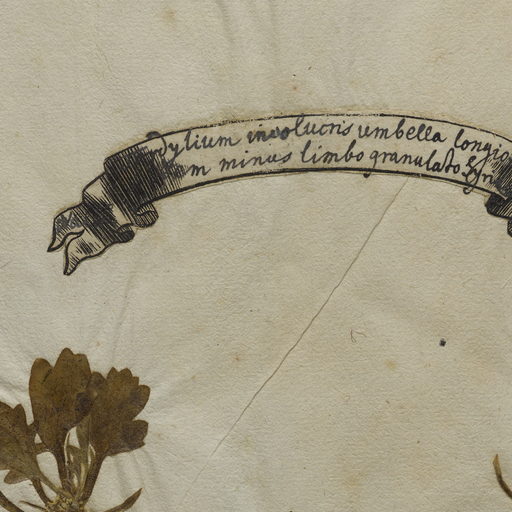 dylium involucris umbella longio
m minus limbo granulato Syri